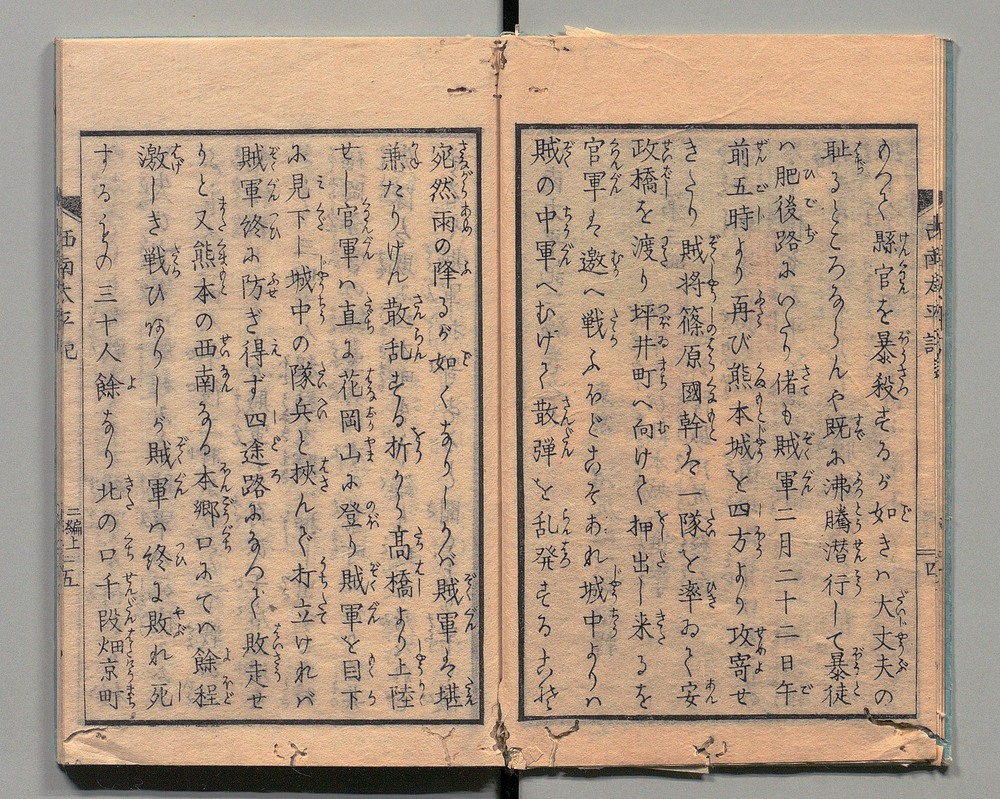 縣官を暴殺するが如きハ大丈夫の
耻るところならんや既に沸騰潜行して暴徒
ハ肥後路にいたり偖も賊軍二月二十二日午
前五時より再び熊本城を四方より攻寄せ
きたり賊将篠原國幹ハ一隊を率ゐて安
政橋を渡り坪井町へ向けて押出し来るを
官軍は邀へ戦ふほどこそあれ城中よりハ
賊の中軍へむけて散弾を乱発する
宛然雨の降るが如くなりしかバ賊軍は堪
兼たりけん散乱する折から髙橋より上陸
せし官軍ハ直に花岡山に登り賊軍を目下
に見下し城中の隊兵と挾んで打立けれバ
賊軍終に防ぎ得ず四途路になつて敗走せ
りと又熊本の西南なる本郷口にてハ餘程
激しき戦ひありしが賊軍ハ終に敗れ死
するもの三十人餘なり北の口千段畑京町
西南太平記
二編上
五